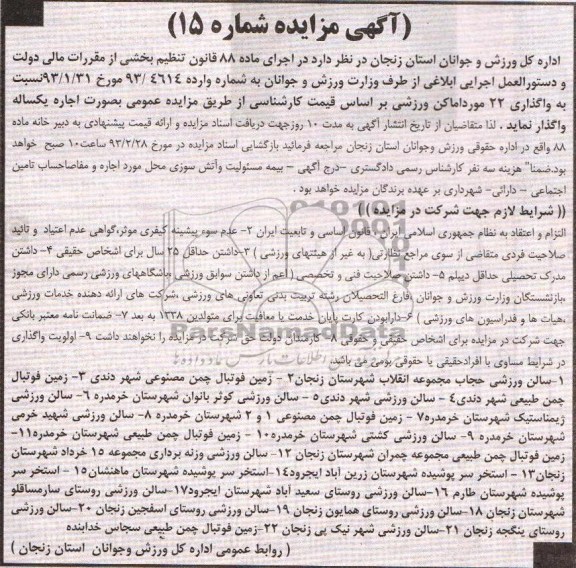 (آگهی مزایده شماره ۱۵)
اداره کل ورزش و جوانان استان زنجان در نظر دارد در اجرای ماده ۸۸ قانون تنظیم بخشی از مقررات مالی دولت
و دستورالعمل اجرایی ابلاغی از طرف وزارت ورزش و جوانان به شماره وارده ۴۶۱۴ /۹۳ مورخ ۹۳/۱/۳۱نسبت
به واگذاری ۲۲ مورداماکن ورزشی بر اساس قیمت کارشناسی از طریق مزایده عمومی بصورت اجاره یکساله
واگذار نماید . لذا متقاضیان از تاریخ انتشار آگهی به مدت ۱۰ روزجهت دریافت اسناد مزایده و ارائه قیمت پیشنهادی به دبیر خانه ماده
۸۸ واقع در اداره حقوقی ورزش وجوانان استان زنجان مراجعه فرمائید بازگشایی اسناد مزایده در مورخ ۹۳/۲/۲۸ ساعت۱۰ صبح خواهد
بود.ضمنا" هزینه سه نفر کارشناس رسمی دادگستری -درج آگهی - بیمه مسئولیت وآتش سوزی محل مورد اجاره و مفاصاحساب تامین
اجتماعی - دارائی- شهرداری بر عهده برندگان مزایده خواهد بود .
(( شرایط لازم جهت شرکت در مزایده ))
التزام و اعتقاد به نظام جمهوری اسلامی ایران ،قانون اساسی و تابعیت ایران ۲- عدم سوء پیشینه کیفری موثر،گواهی عدم اعتیاد و تائید
صلاحیت فردی متقاضی از سوی مراجع نظارتی( به غیر از هیئتهای ورزشی ) ۳-داشتن حداقل ۲۵ سال برای اشخاص حقیقی ۴- داشتن
مدرک تحصیلی حداقل دیپلم ۵- داشتن صلاحیت فنی و تخصصی ( اعم از داشتن سوابق ورزشی ،باشگاههای ورزشی رسمی دارای مجوز
،بازنشستگان وزارت ورزش و جوانان ،فارغ التحصیلان رشته تربیت بدنی تعاونی های ورزشی ،شرکت های ارائه دهنده خدمات ورزشی
،هیات ها و فدراسیون های ورزشی ) ۶-دارابودن کارت پایان خدمت یا معافیت برای متولدین ۱۳۳۸ به بعد ۷- ضمانت نامه معتبر بانکی
جهت شرکت در مزایده برای اشخاص حقیقی و حقوقی ۸- کارمندان دولت حق شرکت در مزایده را نخواهند داشت ۹- اولویت واگذاری
در شرایط مساوی با افرادحقیقی یا حقوقی بومی می باشد.
۱-سالن ورزشی حجاب مجموعه انقلاب شهرستان زنجان۲ - زمین فوتبال چمن مصنوعی شهر دندی ۳- زمین فوتبال
چمن طبیعی شهر دندی۴ - سالن ورزشی شهر دندی۵ - سالن ورزشی کوثر بانوان شهرستان خرمدره ۶- سالن ورزشی
ژیمناستیک شهرستان خرمدره۷ - زمین فوتبال چمن مصنوعی ۱ و ۲ شهرستان خرمدره ۸- سالن ورزشی شهید خرمی
شهرستان خرمدره ۹- سالن ورزشی کشتی شهرستان خرمدره۱۰ - زمین فوتبال چمن طبیعی شهرستان خرمدره۱۱-
زمین فوتبال چمن طبیعی مجموعه چمران شهرستان زنجان ۱۲- سالن ورزشی وزنه برداری مجموعه ۱۵ خرداد شهرستان
زنجان۱۳ - استخر سر پوشیده شهرستان زرین اباد ایجرود۱۴-استخر سر پوشیده شهرستان ماهنشان۱۵ - استخر سر
پوشیده شهرستان طارم ۱۶-سالن ورزشی روستای سعید آباد شهرستان ایجرود۱۷-سالن ورزشی روستای سارمساقلو
شهرستان زنجان ۱۸-سالن ورزشی روستای همایون زنجان ۱۹-سالن ورزشی روستای اسفجین زنجان ۲۰-سالن ورزشی
روستای ینگجه زنجان ۲۱-سالن ورزشی شهر نیک پی زنجان ۲۲-زمین فوتبال چمن طبیعی سجاس خدابنده
( روابط عمومی اداره کل ورزش وجوانان استان زنجان )
ParsNamadData